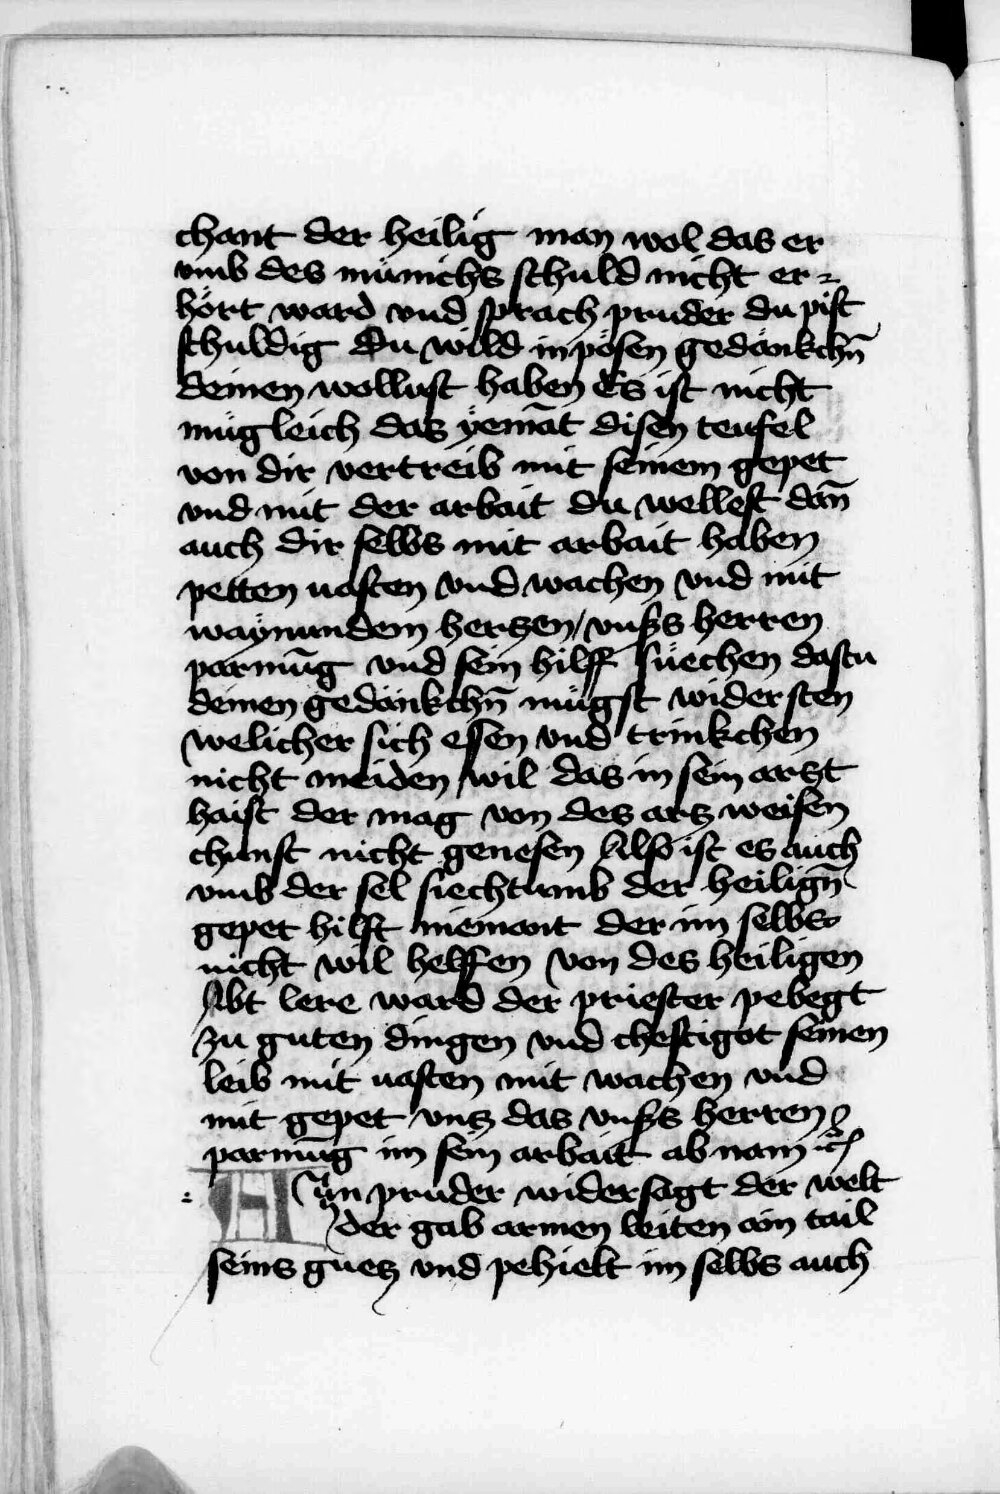 chant der heilig man wol das er
vmb des münichs schuld nicht er⸗
hört ward vnd sprach pruder du pist
schuldig Du wild in pösen gedänkchn̄
deinen wollust haben Es ist nicht
müg leich das yemāt disen teufel
von dir vertreib mit seinem gepet
vnd mit der arbait du wellest dan̄
auch dir selbs mit arbait haben
petten uasten vnd wachen vnd mit
waynundem herczen / vnsers herren
parmūg vnd sein hilff süechen dastu
deinen gedänkchn̄ mügst wider sten
welicher sich essen vnd trinkchen
nicht meiden wil das in sein arczt
haist der mag von des arcz weisen
chunst nicht genesen Also ist es auch
vmb der sel siechtumb der heilign̄
gepet hilft niemant der im selbs
nicht wil helffen von des heiligen
Abt lere ward der priester pebegt
zu guten dingen vnd chestigot seinen
leib mit uasten mit wachen vnd
mit gepet vncz das vnsers herren
parmūg im sein arbait ab nam
Ain pruder widersagt der welt
der gab armen leiten ain tail
seins guecz vnd pehielt im selbs auch